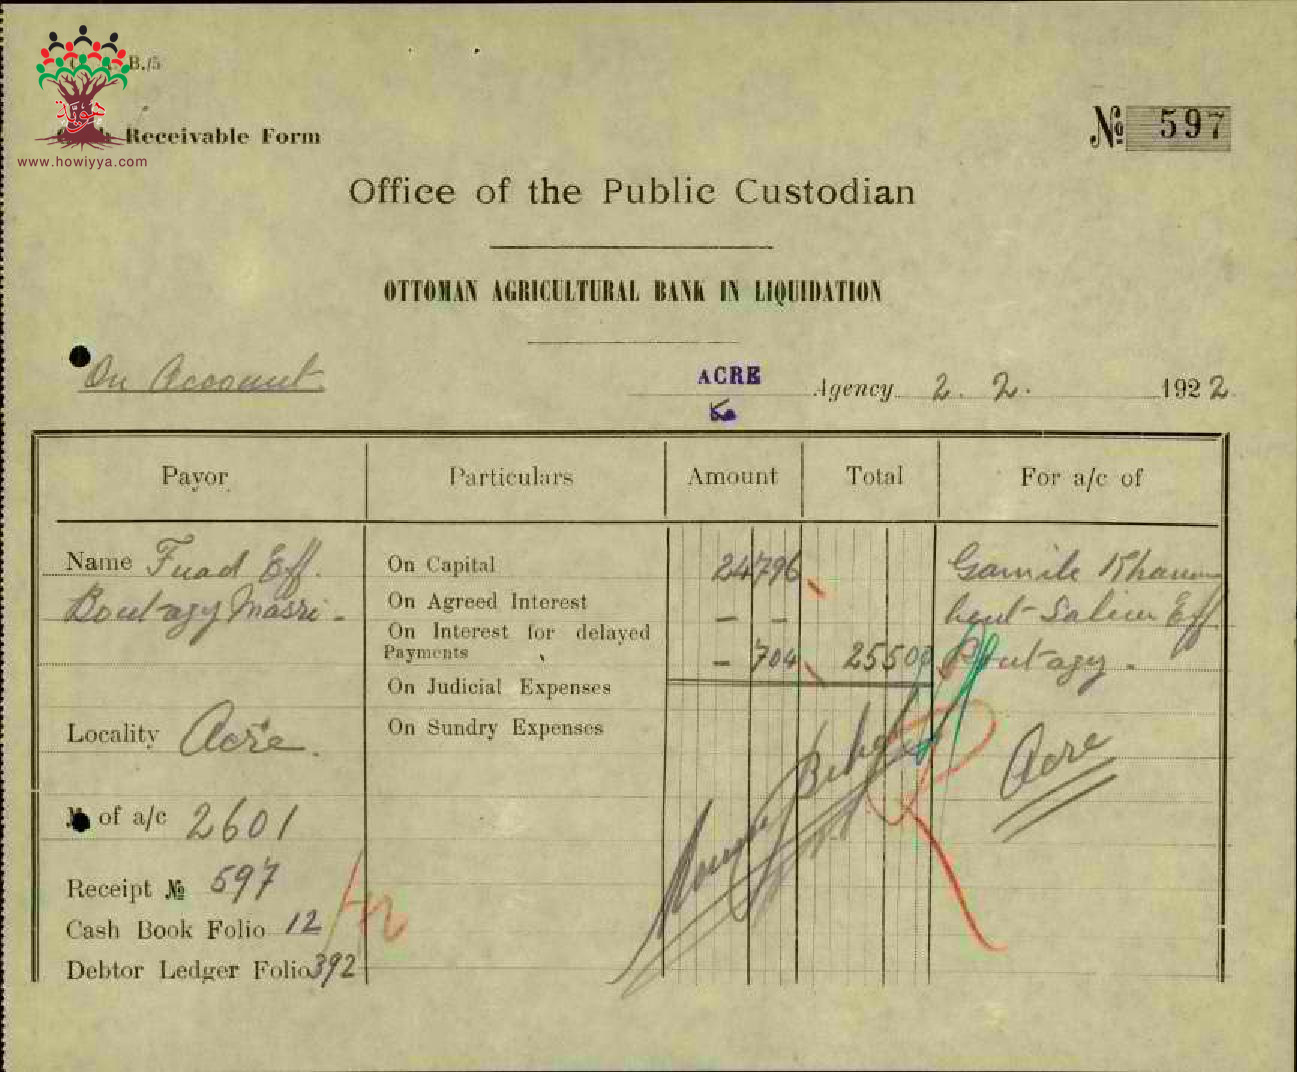 B./5
Receivable Form
هوية
www.howiyya.com
№ 597
Office of the Public Custodian
OTTOMAN AGRICULTURAL BANK IN LIQUIDATION
On Account
ACRE Agency 2. 2. 1922
Payor Particulars Amount Total For a/c of
Name Fuad Eff. On Capital 24 796 Gamile Khanum
Boutagy Masri - On Agreed Interest - - bent Salim Eff
On Interest for delayed
Payments - 704 25500 Boutagy -
On Judicial Expenses
Locality Acre. On Sundry Expenses Acre
№ of a/c 2601
Receipt № 597
Cash Book Folio 12
Debtor Ledger Folio 392